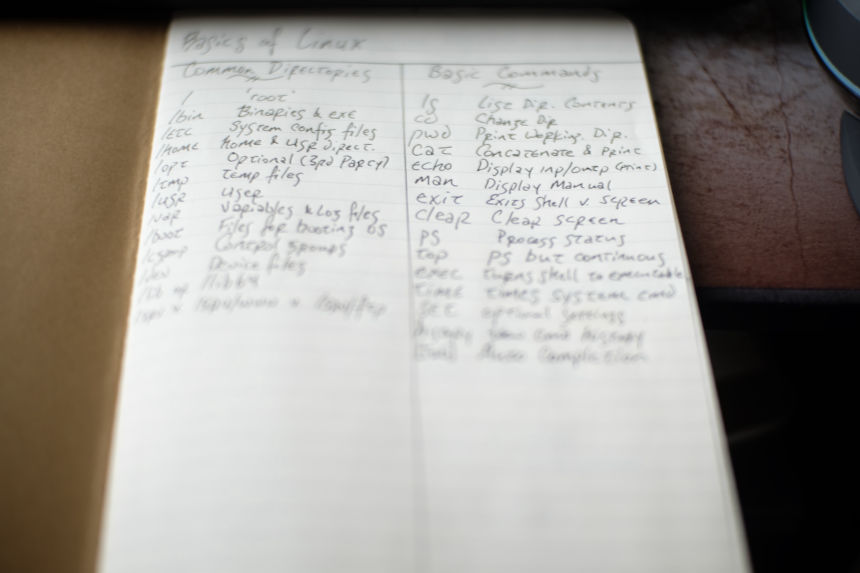 Basics of Linux
Common Directories
/ 'root'
/bin Binaries & exe
/etc System Config files
/Home Home & Usr Direct.
/opt Optional (3rd Party)
/tmp Temp files
/usr User
/var Variables & Log files
/boot Files for booting OS
Control groups
/dev Device files
/lib or /lib64
Basic Commands
ls List Dir. Contents
cd Change Dir
pwd Print Working. Dir.
cat Concatenate & Print
echo Display inp/outp (print)
man Display Manual
exit Exits Shell v. screen
clear Clear screen
ps Process status
top PS but continuous
exec turns shell to executable
time times system cmd
set optional settings
history cmd history
Auto Completion